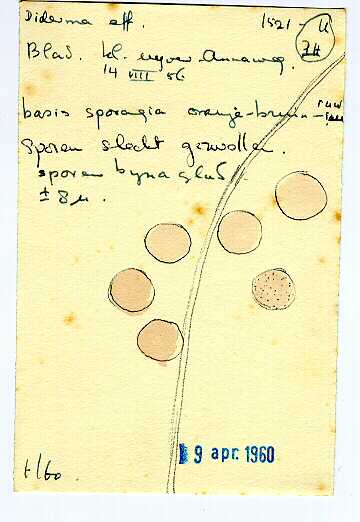 Diderma eff. 1521 - U
Blad. kl. vijver Annaweg.
14 VIII 56
basis sporangia oranje-bruin -
sporen slecht gezwollen.
sporen byna glad
± 8 µ.
9 apr. 1960
t/60.